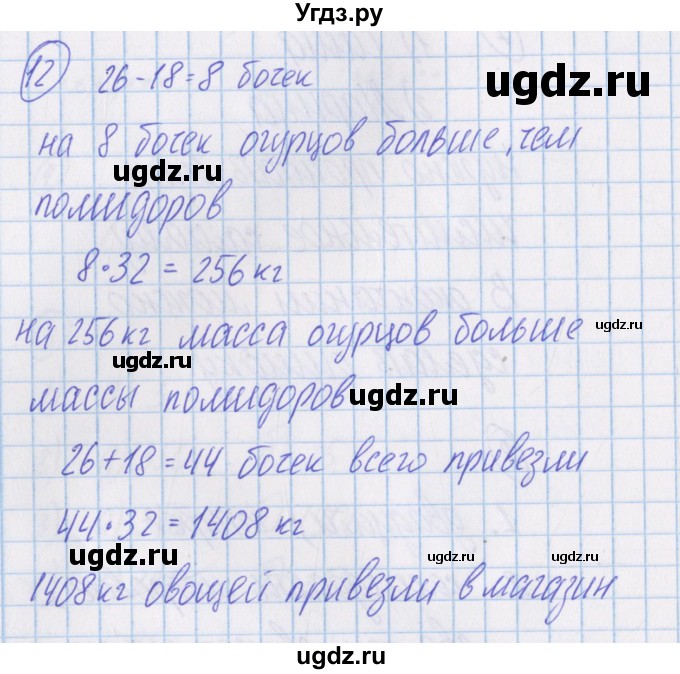 Угдз.ру
12 26-18=8 бочек
ugdz.ru
на 8 бочек огурцов больше, чем
ugdz.ru
помидоров
8·32 = 256 кг
ugdz.ru
на 256 кг масса огурцов больше
ugdz.ru
ugdz.ru
массы помидоров
ugdz.ru
26+18=44 бочек всего привезли
44·32=1408 кг
ugdz.ru
ugdz.ru
1408 кг овощей привезли в магазин
ugdz.ru
ugdz.ru